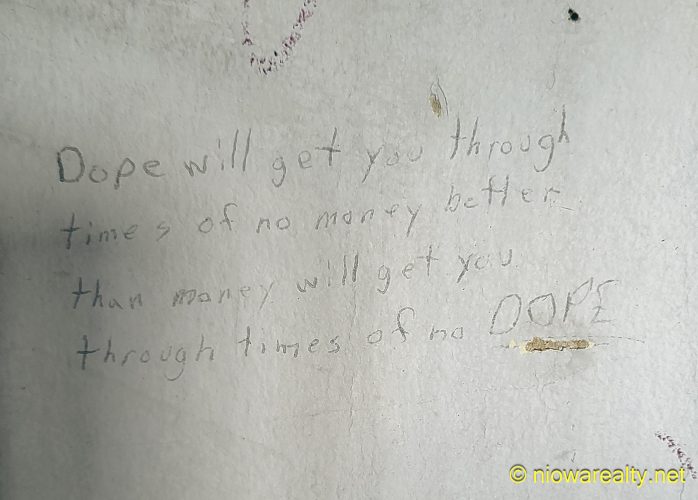 Dope will get you through
times of no money better
than money will get you
through times of no DOPE
© niowarealty.net